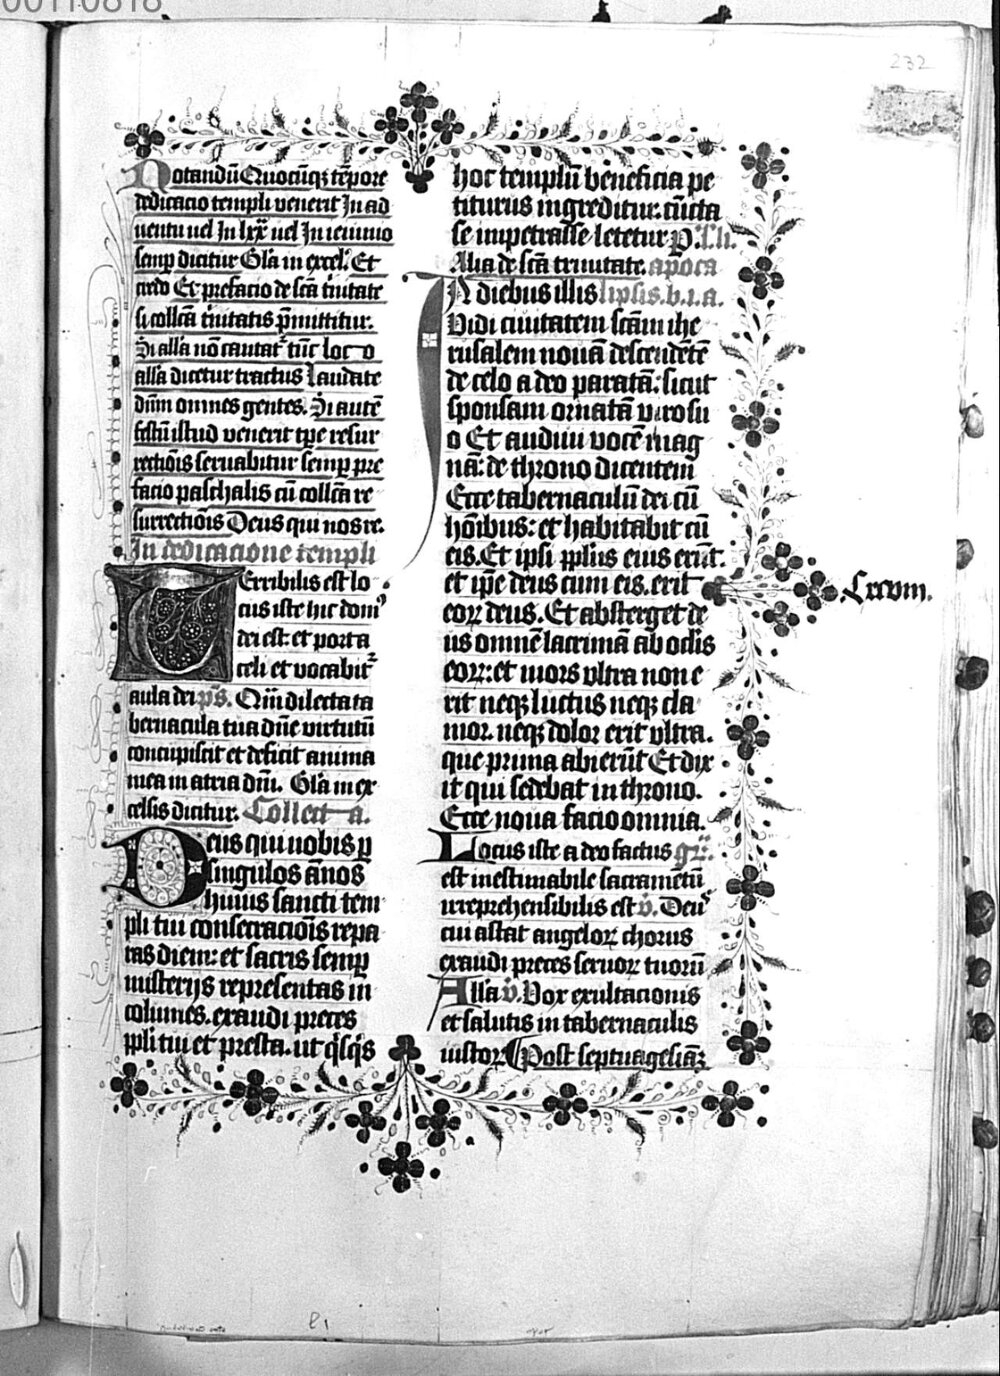 00110818
232
Notandū Quocūqȝ tēpore
dedicacio templi venerit In ad
uentu uel In lxx uel In ieiunio
semp dicitur Glā in excel. Et
credo Et prefacio de scā tͥnitate
si collcā tͥnitatis p̄mittitur.
Si allā nō cantatᷣ tūc loc o
allā dicetur tractus Laudate
dūm omnes gentes. Si autē
festū istud venerit tpe resur
rectiōis seruabitur semp pre
facio paschalis cū collcā re
surrectiōis Deus qui nos re.
In dedicacione templi
Terribilis est lo
cus iste hic domꝰ
dei est: et porta
celi et vocabitᷣ
aula dei p̄s. Qm̄ dilecta ta
bernacula tua dn̄e virtutū
concupiscit et deficit anima
mea in atria dn̄i. Glā in ex
celsis dicitur. Collect a.
Deus qui nobis ꝑ
singulos ānos
huius sancti tem
pli tui consecraciōis repa
ras diem: et sacris semp
misterijs representas in
columes. exaudi preces
ppli tui et presta. ut qͥsqͥs
hoc templū beneficia pe
titurus ingreditur: cūcta
se impetrasse letetur P.
Alia de scā trinitate. apoca
In diebus illis lipsis. b. i. a.
Vidi ciuitatem scām ihe
rusalem nouā descendētē
de celo a deo paratā: sicut
sponsam ornatā viro su
o Et audiui vocē mag
nā: de throno dicentem
Ecce tabernaculū dei cū
hōibus: et habitabit cū
eis. Et ipsi pplūs eius erūt.
et ip̄e deus cum eis. erit
eoꝝ deus. Et absterget de
us omnē lacrimā ab oclis
eoꝝ: et mors vltra non e
rit neqȝ luctus neqȝ cla
mor. neqȝ dolor erit vltra.
que prima abierūt Et dix
it qui sedebat in throno.
Ecce noua facio omnia.
Locus iste a deo factus gr̄.
est inestimabile sacramētū
irreprehensibilis est v̄. Deus
cui astat angeloꝝ chorus
exaudi preces seruoꝝ tuorū
Allā v̄. Vox exultacionis
et salutis in tabernaculis
iustoꝝ Post septuagesimā